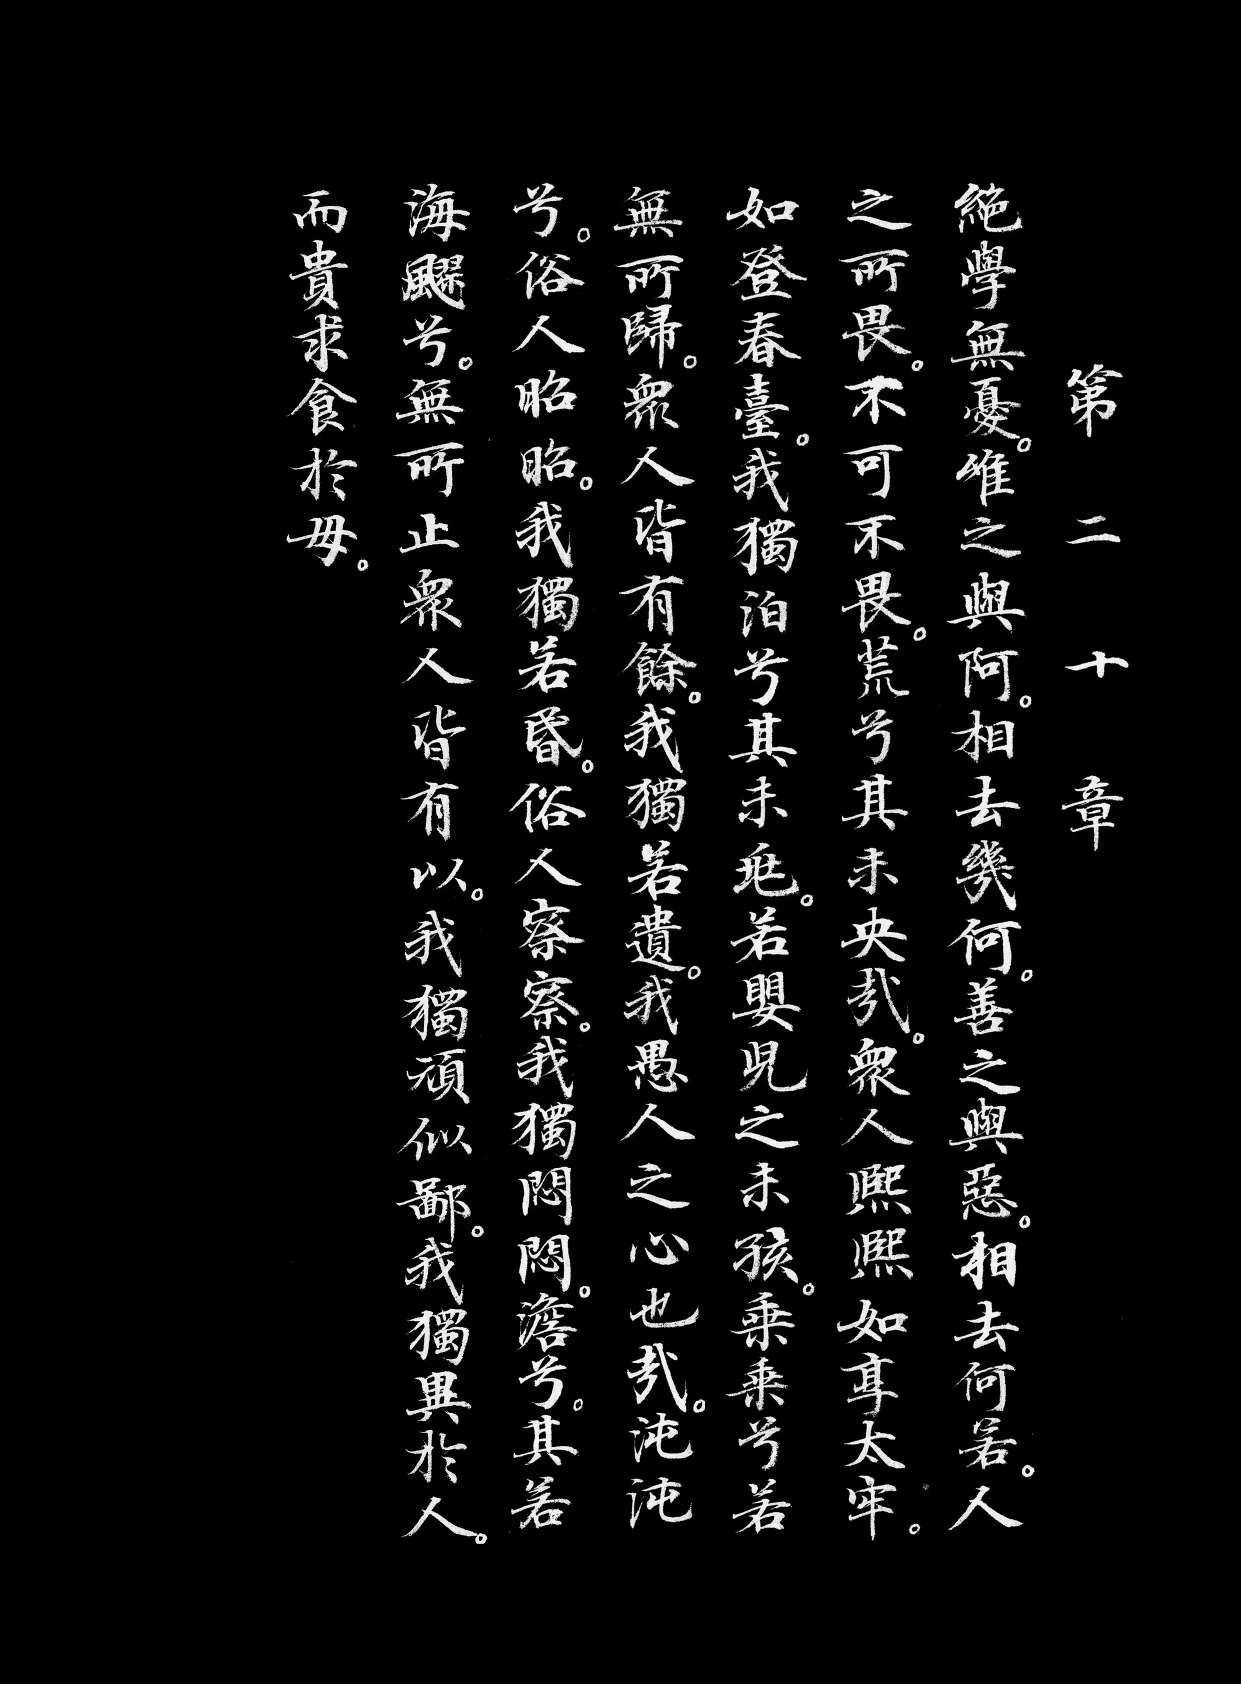 第二十章
絕學無憂。唯之與阿。相去幾何。善之與惡。相去何若。人
之所畏。不可不畏。荒兮其未央哉。衆人熙熙如享太牢。
如登春臺。我獨泊兮其未兆。若嬰兒之未孩。乘乘兮若
無所歸。衆人皆有餘。我獨若遺。我愚人之心也哉。沌沌
兮。俗人昭昭。我獨若昏。俗人察察。我獨悶悶。澹兮。其若
海飂兮。無所止衆人皆有以。我獨頑似鄙。我獨異於人。
而貴求食於母。